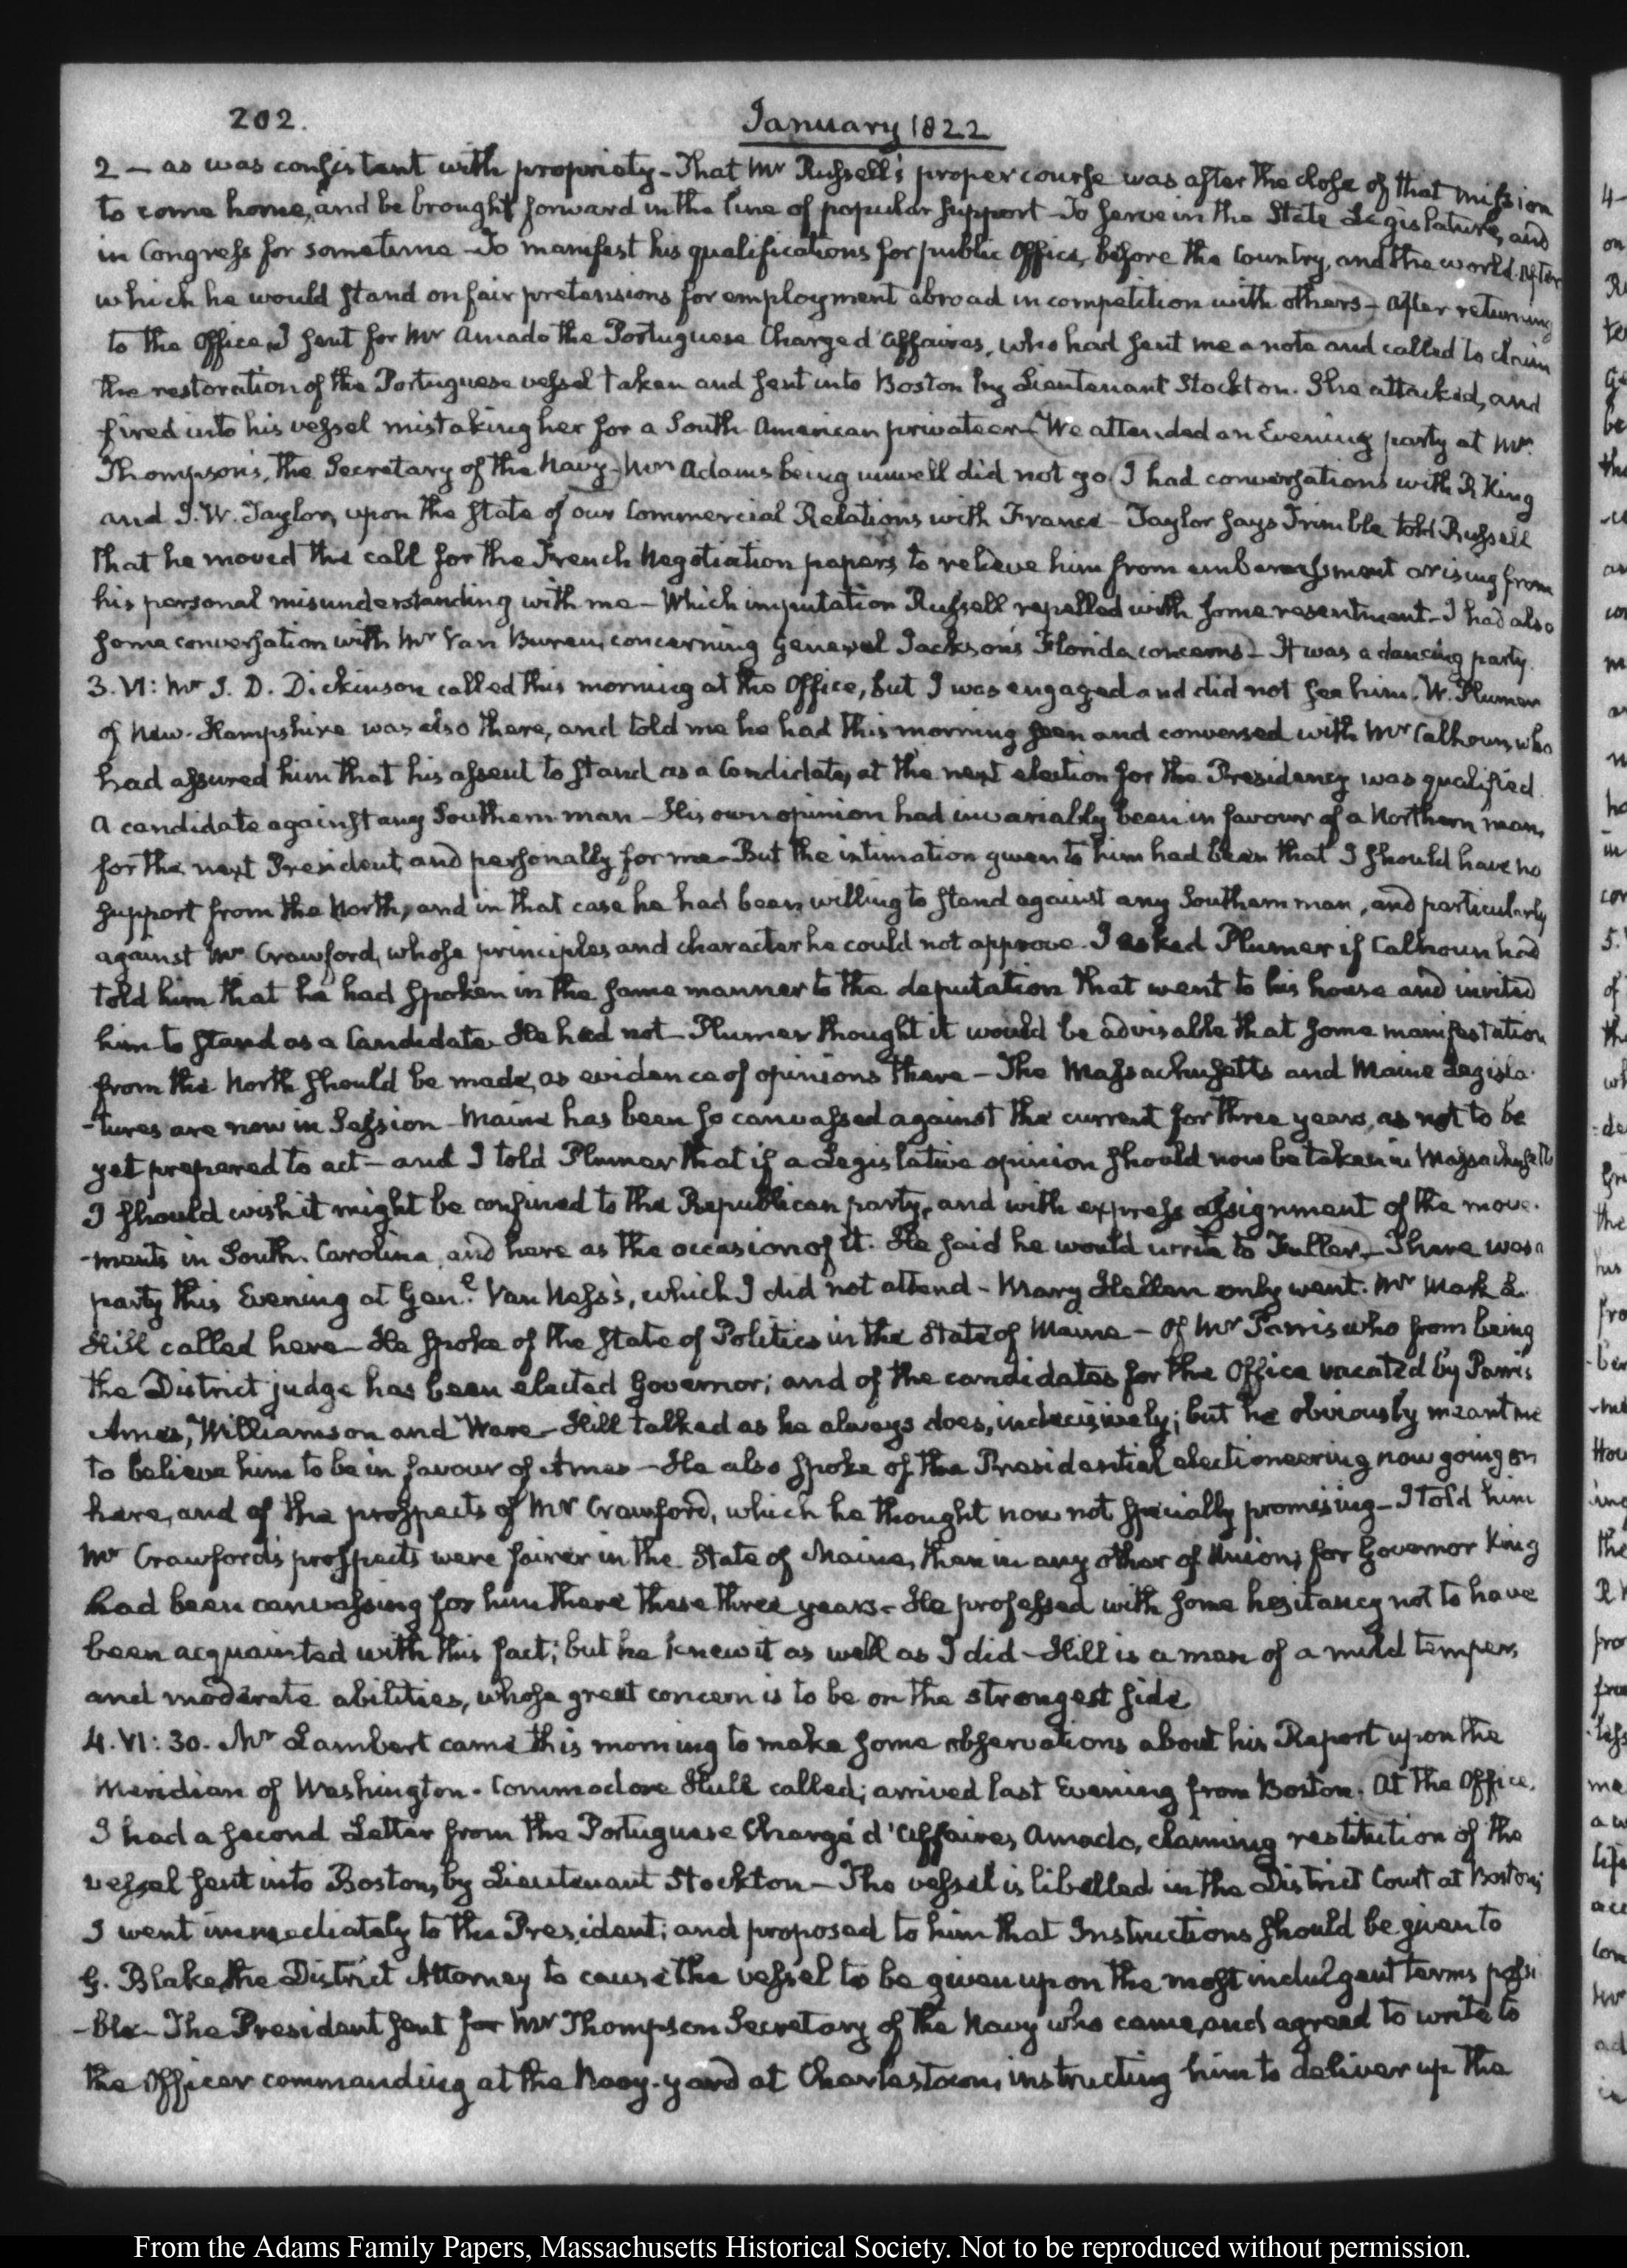 202.
January 1822
2 – as was consistent with propriety – That Mr Russell's proper course was after the close of that mission
to come home, and be brought forward in the line of popular support – To serve in the State Legislature, and
in Congress for sometime – To manifest his qualifications for public Office, before the Country, and the world. After
which he would stand on fair pretensions for employment abroad in competition with others – After returning
to the Office, I sent for Mr Amado the Portuguese Chargé d'affaires, who had sent me a note and called to claim
the restoration of the Portuguese vessel taken and sent into Boston by Lieutenant Stockton. She attacked, and
fired into his vessel mistaking her for a South-American privateer – We attended an Evening party at Mr
Thompson's, the Secretary of the Navy – Mrs Adams being unwell did not go. I had conversations with R King
and J. W. Taylor, upon the state of our Commercial Relations with France – Taylor says Trimble told Russell
that he moved the call for the French Negotiation papers, to relieve him from embarassment arising from
his personal misunderstanding with me – Which imputation Russell repelled with some resentment – I had also
some conversation with Mr Van Buren, concerning General Jackson's Florida concerns – It was a dancing party.
3. VI: Mr J. D. Dickinson called this morning at the Office, but I was engaged and did not see him. W. Plumer
of New-Hampshire was also there, and told me he had this morning seen and conversed with Mr Calhoun, who
had assured him that his assent to stand as a Candidate, at the next election for the Presidency was qualified.
A candidate against any Southern man – His own opinion had invariably been in favour of a Northern man,
for the next President, and personally for me – But the intimation given to him had been that I should have no
support from the North, and in that case he had been willing to stand against any Southern man, and particularly
against Mr Crawford, whose principles and character he could not approve. I asked Plumer if Calhoun had
told him that he had spoken in the same manner to the deputation that went to his house and invited
him to stand as a Candidate. He had not – Plumer thought it would be advisable that some manifestation
from the North should be made, as evidence of opinions there – The Massachusetts and Maine Legisla-
-tures are now in Session – Maine has been so canvassed against the current for three years, as not to be
yet prepared to act – and I told Plumer that if a Legislative opinion should now be taken in Massachusetts
I should wish it might be confined to the Republican party, and with express assignment of the move-
-ments in South-Carolina, and here as the occasion of it. He said he would write to Fuller – There was a
party this Evening at Genl Van Ness's, which I did not attend – Mary Hellen only went. Mr Mark L.
Hill called here – He spoke of the State of Politics in the State of Maine – Of Mr Parris who from being
the District judge has been elected Governor; and of the candidates for the Office vacated by Parris
Ames, Williamson and Ware – Hill talked as he always does, indecisively; but he obviously meant me
to believe him to be in favour of Ames – He also spoke of the Presidential electioneering now going on
here, and of the prospects of Mr Crawford, which he thought now not specially promising – I told him
Mr Crawford's prospects were fairer in the State of Maine, than in any other of Union; for Governor King
had been canvassing for him there these three years – He professed with some hesitancy not to have
been acquainted with this fact; but he knew it as well as I did – Hill is a man of a mild temper,
and moderate abilities, whose great concern is to be on the strongest side.
4. VI: 30. Mr Lambert came this morning to make some observations about his Report upon the
Meridian of Washington. Commodore Hull called; arrived last Evening from Boston. At the Office,
I had a second Letter from the Portuguese Chargé d'Affaires, Amado, claiming restitution of the
vessel sent into Boston, by Lieutenant Stockton – The vessel is libelled in the District Court at Boston;
I went immediately to the President; and proposed to him that Instructions should be given to
G. Blake, the District Attorney to cause the vessel to be given up on the most indulgent terms possi
-ble – The President sent for Mr Thompson Secretary of the Navy who came, and agreed to write to
the Officer commanding at the Navy-yard at Charlestown, instructing him to deliver up the
From the Adams Family Papers, Massachusetts Historical Society. Not to be reproduced without permission.